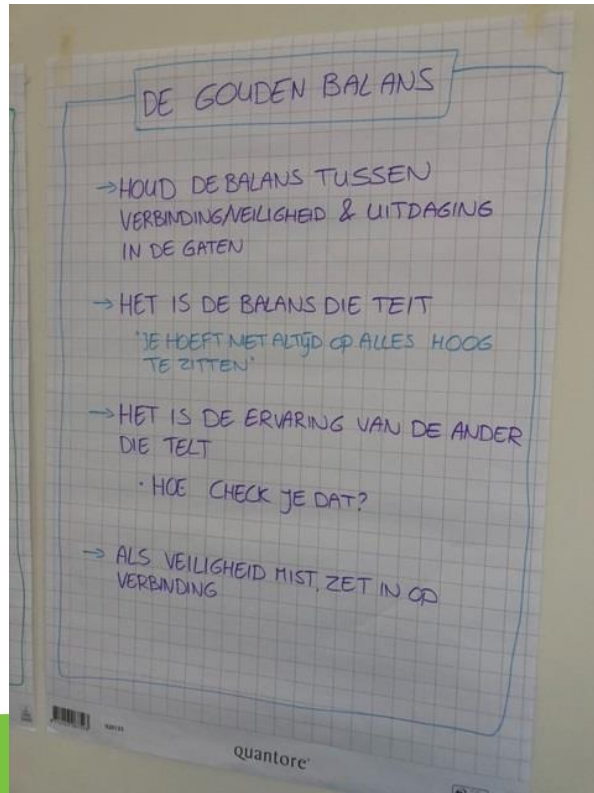 DE GOUDEN BALANS
→ HOUD DE BALANS TUSSEN
VERBINDING/VEILIGHEID & UITDAGING
IN DE GATEN
→ HET IS DE BALANS DIE TEIT
'JE HOEFT NIET ALTIJD OP ALLES HOOG
TE ZITTEN'
→ HET IS DE ERVARING VAN DE ANDER
DIE TELT
· HOE CHECK JE DAT?
→ ALS VEILIGHEID MIST, ZET IN OP
VERBINDING
quantore